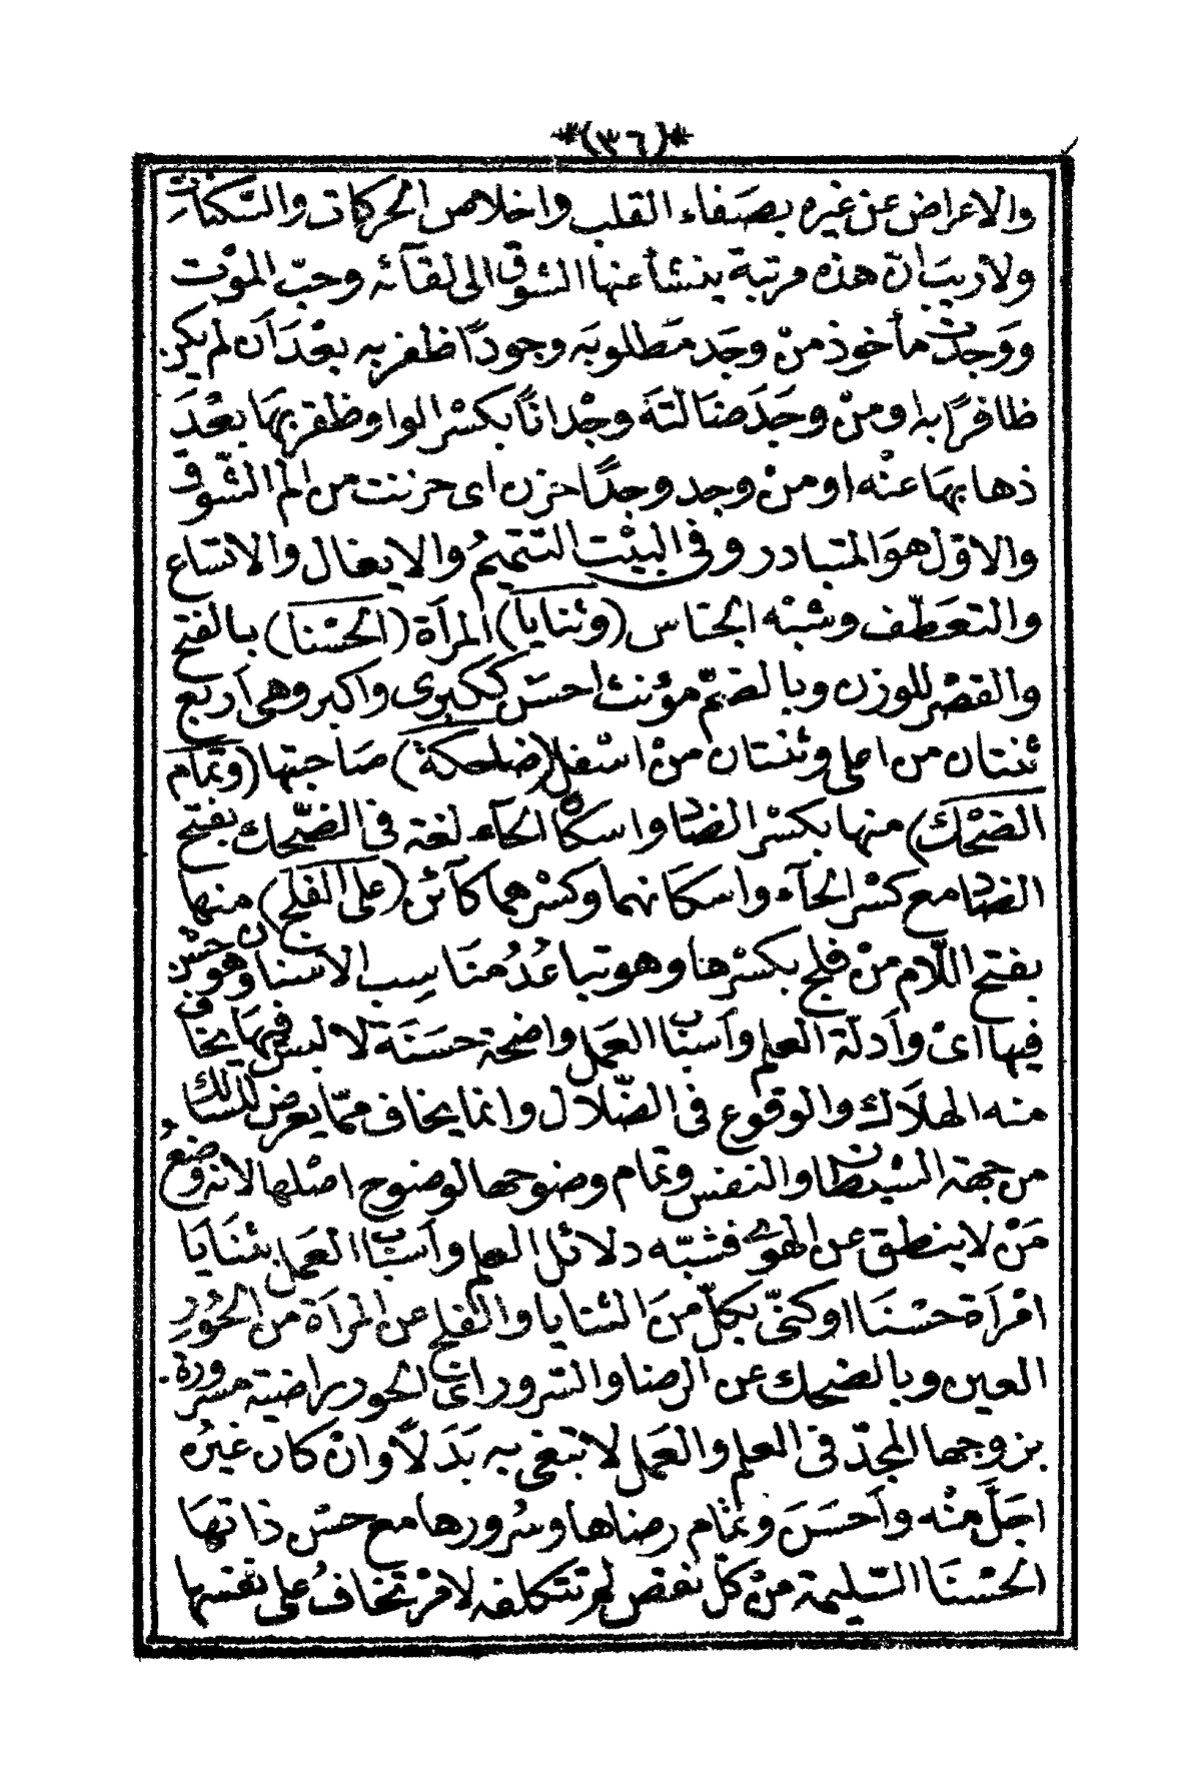 *(٣٦)*
والاعراض عن غيره بصفاء القلب واخلاص الحركات والسكنات
ولا ريب ان هذه مرتبة ينشأ عنها الشوق الى لقآئه وحبّ الموْت
ووجدت مأخوذ منْ وجَد مَطلوبَه وجودًا ظفر به بعْدَ اَن لم يكن
ظافرًا به اومنْ وجَدَ ضالتَه وجْدانًا بكسْر الواو ظفر بهَا بعْدَ
ذهابهَا عنْه اومنْ وجد وجدًا حزن اى حزنت من الم الشّوق
والاوّل هوَ المتبادر وفى البيْت التتميمُ والايغال والاتساع
والتعَطّف وشبْه الجناس (وثنايا) المرأة (الحسْنا) بالفتح
والقصْر للوزن وبالضمّ مؤنث احسَن ككبرى واكبر وهى اربع
ثنتان من اعلى وثنتان منْ اسْفل (ضاحكة) صَاحبتها (وتمام
الضحْك) منها بكسْر الضاد واسكان الحآء لغة فى الضّحك بفتح
الضاد مع كسْر الحآء واسكانهما وكسْرهما كآئن (على الفلج) منها
بفتح اللّام منْ فلج بكسْرها وهو تباعُدُ منَاسِب الاسنان وهو حسْن
فيها اىْ واَدلّة العلم واَسبَاب العَمل واضحة حسَنَة لا لبس فيهَا يخاف
منه الهلاَك والوقوع فى الضّلال وانما يخاف ممّا يعرض للسالك
من جهة الشيطان والنفس وتمام وضوحها لوضوح اصْلها لانه وضعُ
مَنْ لا ينطق عن الهوى فشبّه دلائل العلم واَسبَاب العَمل بثنَايَا
امْرَاَة حسْنَا اوكنىّ بكلّ منَ الثنايا والفلج عن المرأة من الحُورِ
العين وبالضحك عن الرضا والسرور اى الحور راضية مسرورة
بزوجها المجدّ فى العلم والعَمل لا تبتغى به بَدَلًا وانْ كان غيْرُه
اجَلَّ منْه واَحسَنَ وتمام رضاها وسُرورها مع حسْن ذاتهَا
الحسْنَا السّليمة منْ كلّ نقص لم تتكلفه لامْر تخافُ على نفسها